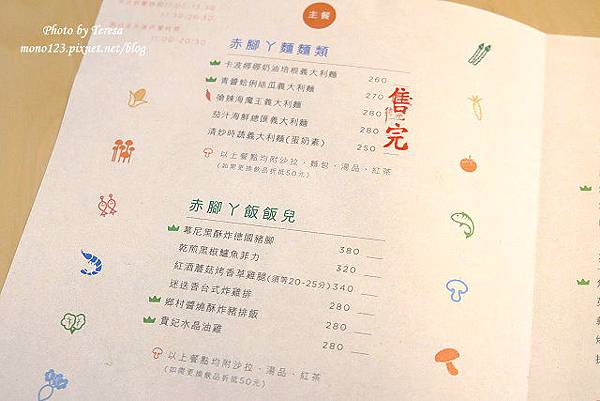 Photo by Teresa
mono123.pixnet.net/blog
主餐
赤腳丫麵麵類
卡波娜娜奶油培根義大利麵 260
青醬蛤俐絲瓜義大利麵 270
嗆辣海魔王義大利麵 280
茄汁海鮮總匯義大利麵 280
清炒時蔬義大利麵(蛋奶素) 250
售完
以上餐點均附沙拉、麵包、湯品、紅茶
(如需更換飲品折抵50元)
赤腳丫飯飯兒
慕尼黑酥炸德國豬腳 380
乾煎黑椒鱸魚菲力 320
紅酒蘑菇烤香草雞腿(須等20-25分) 340
迷迭香台式炸雞排 280
鄉村醬燒酥炸豬排飯 280
貴妃水晶油雞 280
以上餐點均附沙拉、湯品、紅茶
(如需更換飲品折抵50元)